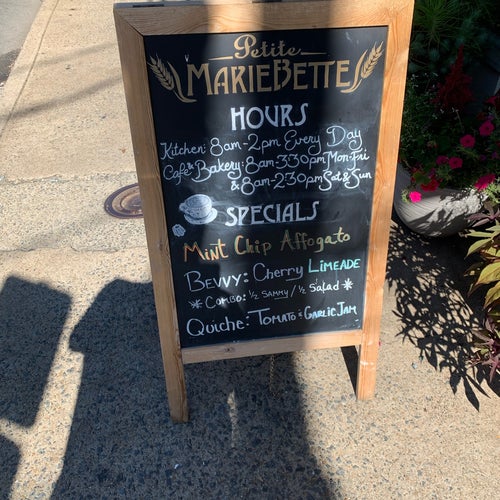 Petite
MarieBette
HOURS
Kitchen: 8am-2pm Every Day
Cafe & Bakery: 8am-3:30pm Mon-Fri
& 8am-2:30pm Sat & Sun
SPECIALS
Mint Chip Affogato
Bevvy: Cherry Limeade
* Combo: ½ Sammy / ½ Salad *
Quiche: Tomato & Garlic Jam